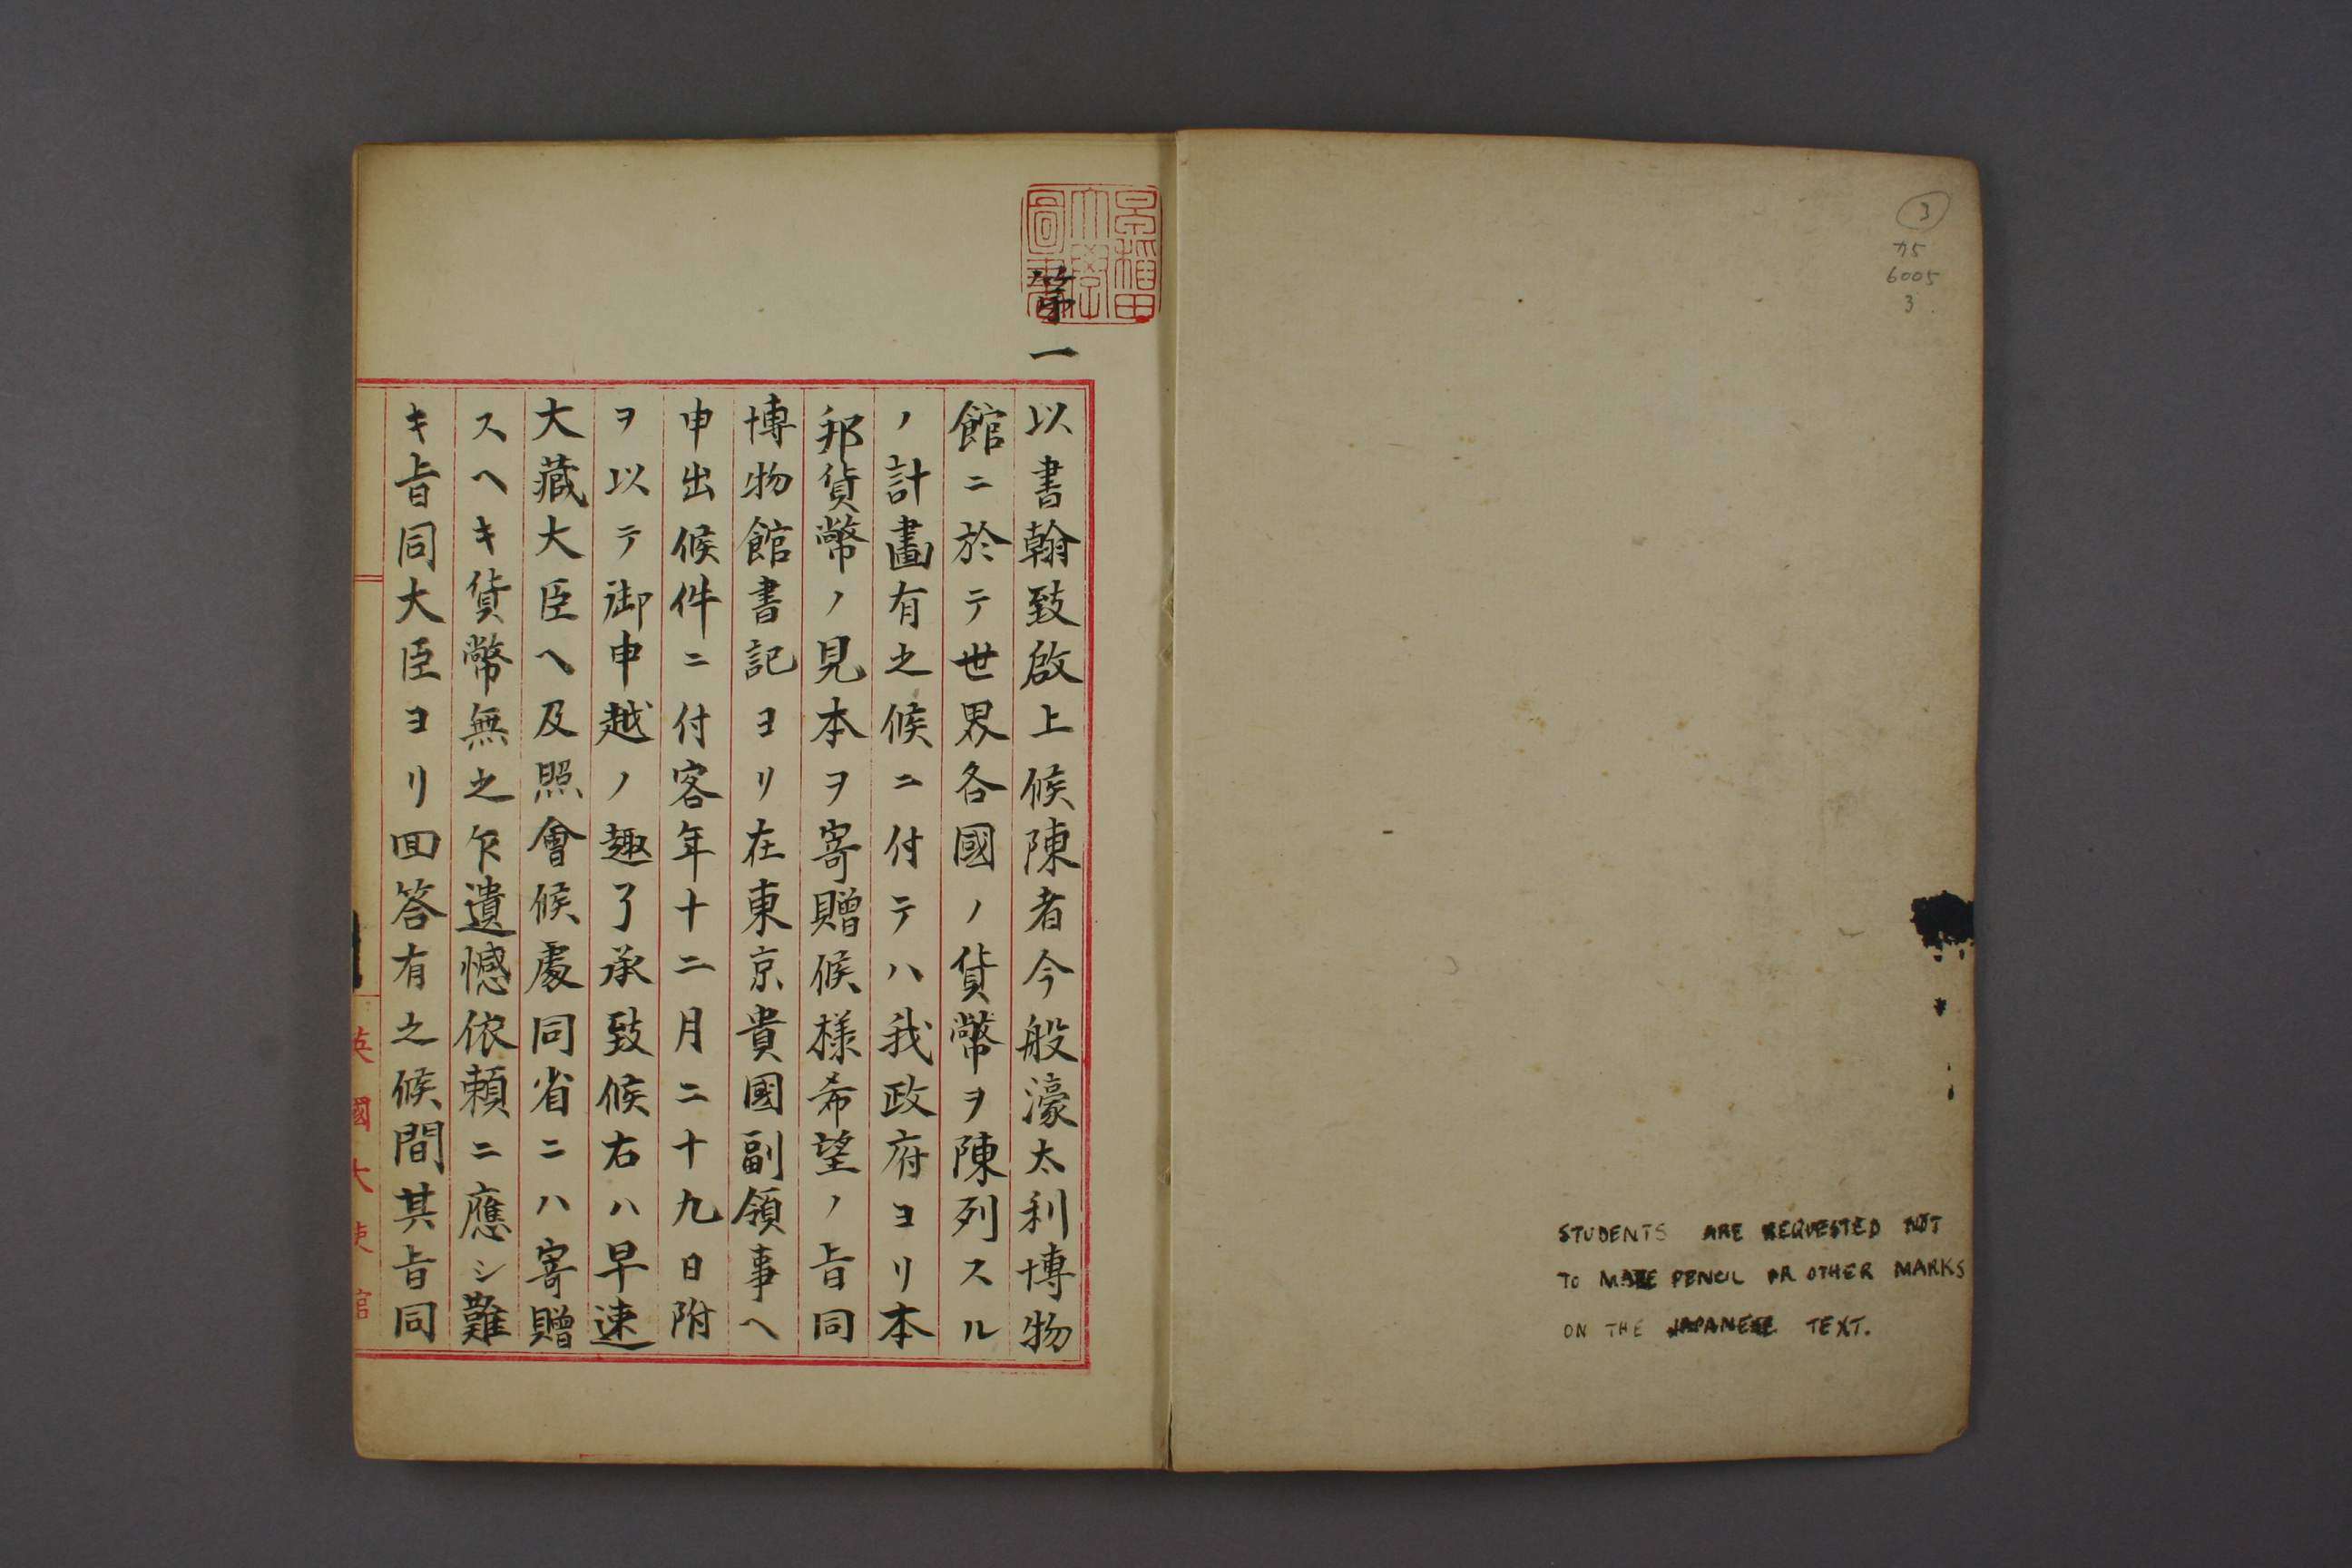 3
カ5
6005
3
STUDENTS ARE REQUESTED NOT
TO MAKE PENCIL OR OTHER MARKS
ON THE JAPANESE TEXT.
早稲田
大學
圖書
第一
以書翰致啟上候陳者今般濠太利博物
館ニ於テ世界各國ノ貨幣ヲ陳列スル
ノ計畫有之候ニ付テハ我政府ヨリ本
邦貨幣ノ見本ヲ寄贈候様希望ノ旨同
博物館書記ヨリ在東京貴國副領事ヘ
申出候件ニ付客年十二月二十九日附
ヲ以テ御申越ノ趣了承致候右ハ早速
大藏大臣ヘ及照會候處同省ニハ寄贈
スヘキ貨幣無之乍遺憾依頼ニ應シ難
キ旨同大臣ヨリ回答有之候間其旨同
英國大使館